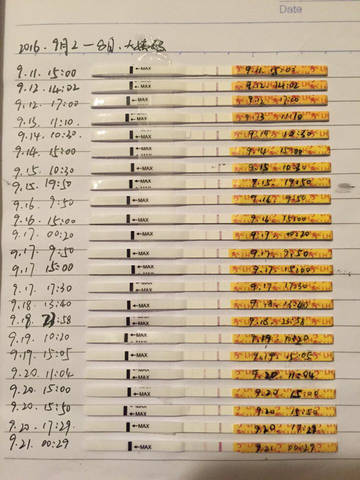 Date
2016. 9月2-8日. 大姨妈
9.11. 15:00 ←MAX 9.11. 15:00
9.12. 14:02 ←MAX 9.12 14:02
9.12. 17:00 ←MAX 9.12 17:00
9.13. 11:10 ←MAX 9.13 11:10
9.14. 10:30 ←MAX 9.14 10:30
9.14. 15:00 ←MAX 9.14 15:00
9.15. 10:30 ←MAX 9.15 10:30
9.15. 19:50 ←MAX 9.15. 19:50
9.16. 9:50 ←MAX 9.16 9:50
9.16. 15:00 ←MAX 9.16 15:00
9.17. 00:20 ←MAX 9.17 00:20
9.17. 9:50 ←MAX 9.17 9:50
9.17 15:00 ←MAX 9.17 15:00
9.17. 17:30 ←MAX 9.17 17:30
9.18. 13:40 ←MAX 9.18 13:40
9.18. 23:58 ←MAX 9.18 23:58
9.19. 10:20 ←MAX 9.19 10:20
9.19. 15:05 ←MAX 9.19 15:05
9.20. 11:04 ←MAX 9.20 11:04
9.20. 15:00 ←MAX 9.20 15:00
9.20. 15:50 ←MAX 9.20 15:50
9.20. 17:29 ←MAX 9.20 17:29
9.21. 00:29 ←MAX 9.21 00:29